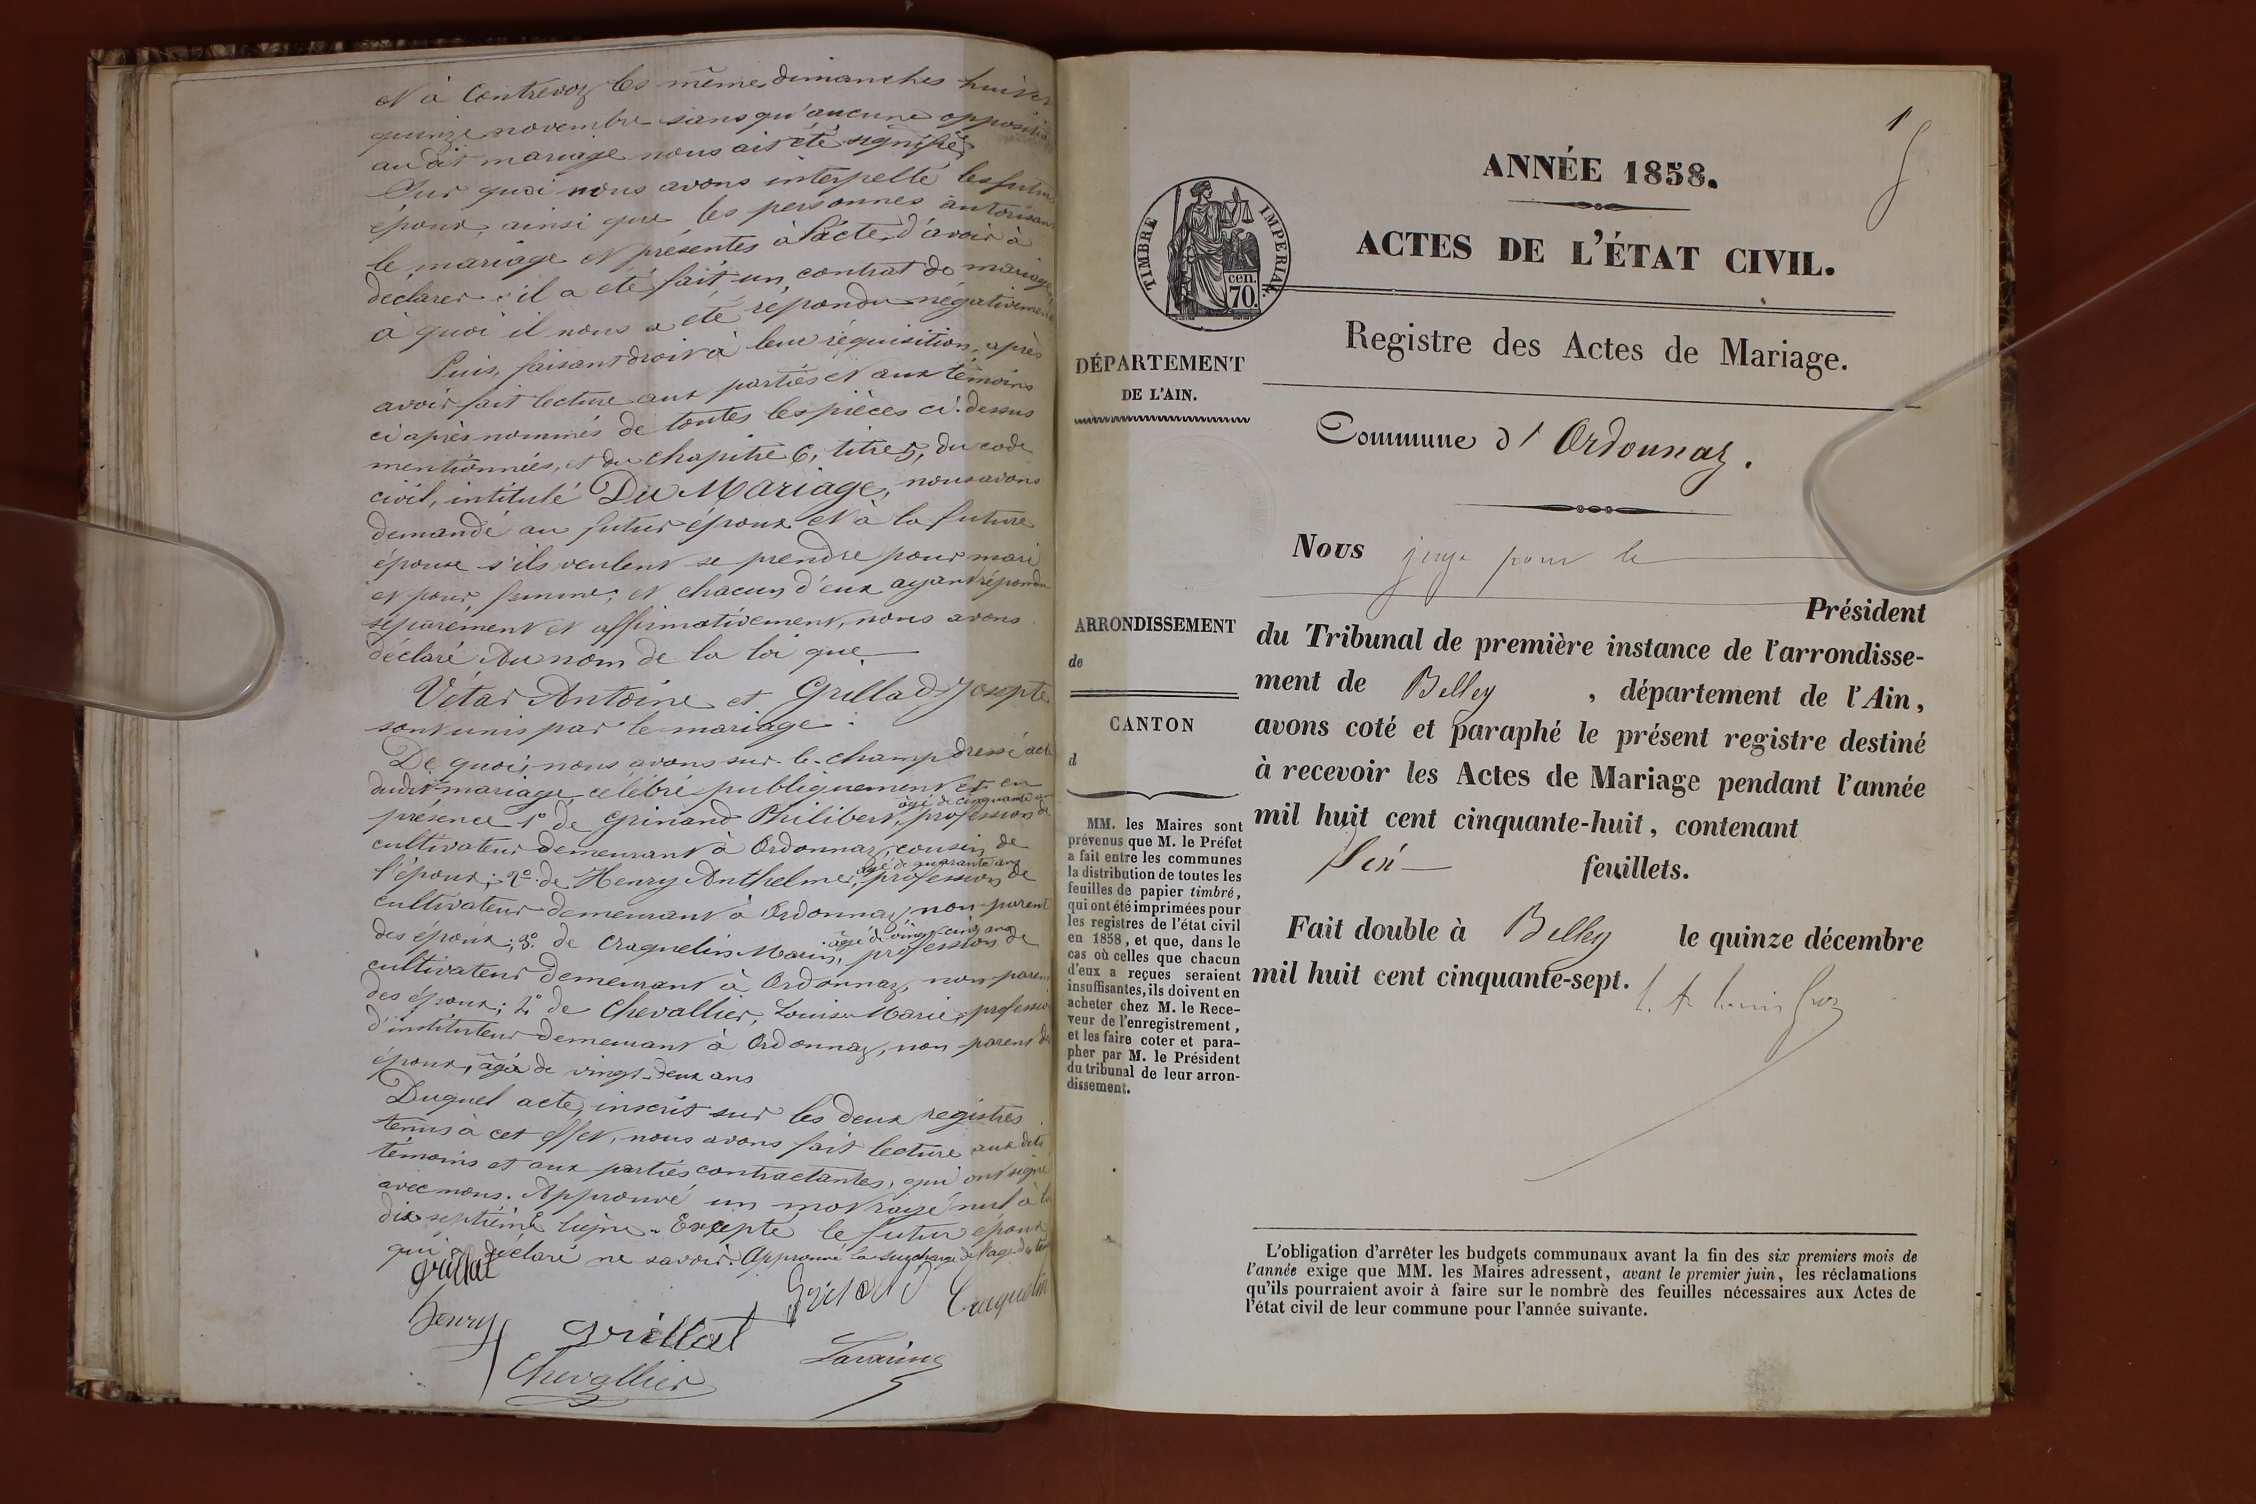 et à Contrevoz les mêmes dimanches huit et
quinze novembre sans qu'aucune opposition
au dit mariage nous ait été signifiée
Sur quoi nous avons interpellé les futurs
époux, ainsi que les personnes autorisant
le mariage et présentes à l'acte, d'avoir à
déclarer s'il a été fait un contrat de mariage,
à quoi il nous a été répondu négativement
Puis, faisant droit à leur réquisition, après
avoir fait lecture aux parties et aux témoins
ci après nommés de toutes les pièces ci-dessus
mentionnées, et du chapitre 6, titre 5, du code
civil, intitulé Du Mariage, nous avons
demandé au futur époux et à la future
épouse s'ils veulent se prendre pour mari
et pour femme; et chacun d'eux ayant répondu
séparément et affirmativement, nous avons
déclaré Au nom de la loi que
Vétar Antoine et Grillad Josepte
sont unis par le mariage.
De quoi nous avons sur-le-champ dressé acte
dudit mariage, célébré publiquement et en
âgé de cinquante ans
présence 1° de Grinand Philibert, profession de
cultivateur demeurant à Ordonnaz, cousin de
âgé de quarante ans
l'époux; 2° de Henry Anthelme, profession de
cultivateur demeurant à Ordonnaz, non parent
âgé de vingt-cinq ans
des époux; 3° de Craquelin Marin, profession de
cultivateur demeurant à Ordonnaz, non parent
des époux; 4° de Chevallier, Louis Marie, profession
d'instituteur demeurant à Ordonnaz, non parent des
époux, âgé de vingt-deux ans
Duquel acte, inscrit sur les deux registres
tenus à cet effet, nous avons fait lecture aux dits
témoins et aux parties contractantes, qui ont signé
avec nous. Approuvé un mot rayé nul à la
dix septième ligne. Excepté le futur époux
qui a déclaré ne savoir. Approuvé la surcharge de l'age du
grillat
Craquelin
henry
grillat
Chevallier
1
ANNÉE 1858.
ACTES DE L'ÉTAT CIVIL.
TIMBRE IMPERIAL.
cen.
70.
Registre des Actes de Mariage.
DÉPARTEMENT
DE L'AIN.
Commune d'Ordonnaz.
Nous juge pour le
Président
ARRONDISSEMENT
de
du Tribunal de première instance de l'arrondisse-
ment de Belley, département de l'Ain,
CANTON
d
avons coté et paraphé le présent registre destiné
à recevoir les Actes de Mariage pendant l'année
mil huit cent cinquante-huit, contenant
Six feuillets.
Fait double à Belley le quinze décembre
mil huit cent cinquante-sept.
MM. les Maires sont
prévenus que M. le Préfet
a fait entre les communes
la distribution de toutes les
feuilles de papier timbré,
qui ont été imprimées pour
les registres de l'état civil
en 1858, et que, dans le
cas où celles que chacun
d'eux a reçues seraient
insuffisantes, ils doivent en
acheter chez M. le Rece-
veur de l'enregistrement,
et les faire coter et para-
pher par M. le Président
du tribunal de leur arron-
dissement.
L'obligation d'arrêter les budgets communaux avant la fin des six premiers mois de
l'année exige que MM. les Maires adressent, avant le premier juin, les réclamations
qu'ils pourraient avoir à faire sur le nombre des feuilles nécessaires aux Actes de
l'état civil de leur commune pour l'année suivante.